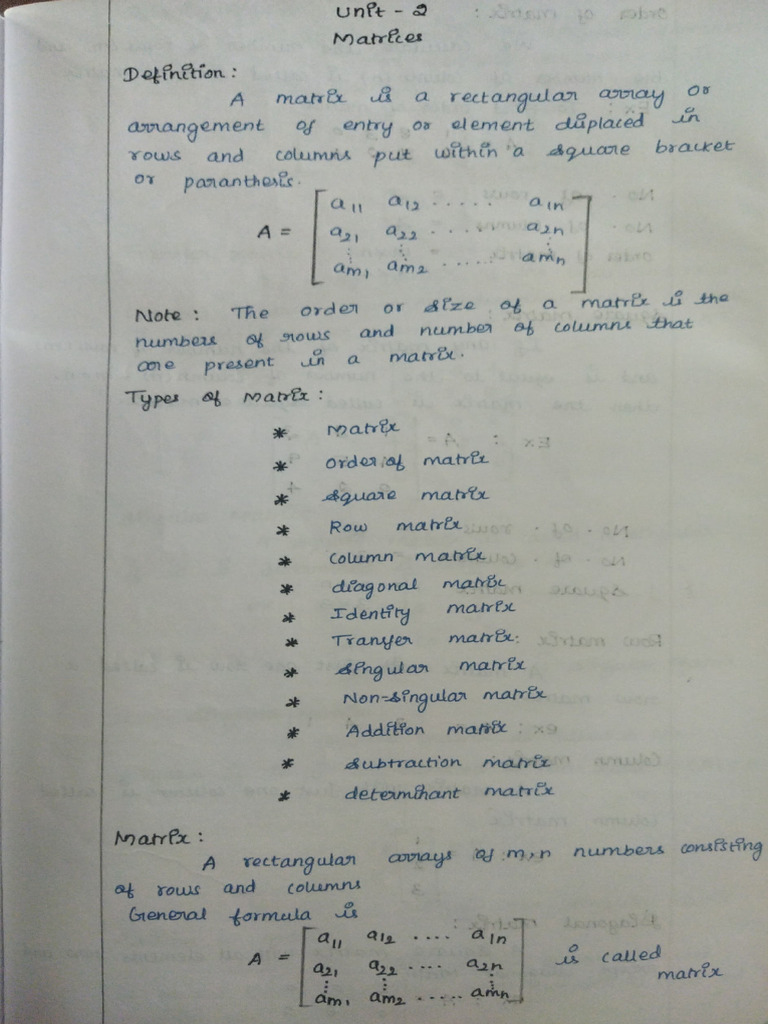 Unit - 2
Matrices
Definition :
A matrix is a rectangular array or
arrangement of entry or element displaced in
rows and columns put within a square bracket
or paranthesis.
A = [ a11 a12 ..... a1n
a21 a22 ..... a2n
⋮ ⋮ ⋮
am1 am2 ..... amn ]
Note : The order or size of a matrix is the
numbers of rows and number of columns that
are present in a matrix.
Types of Matrix :
* Matrix
* order of matrix
* square matrix
* Row matrix
* column matrix
* diagonal matrix
* Identity matrix
* Transfer matrix.
* singular matrix
* Non-singular matrix
* Addition matrix
* subtraction matrix
* determinant matrix
Matrix :
A rectangular arrays of m,n numbers consisting
of rows and columns
General formula is
A = [ a11 a12 .... a1n
a21 a22 .... a2n
⋮ ⋮ ⋮
am1 am2 ..... amn ] is called
matrix